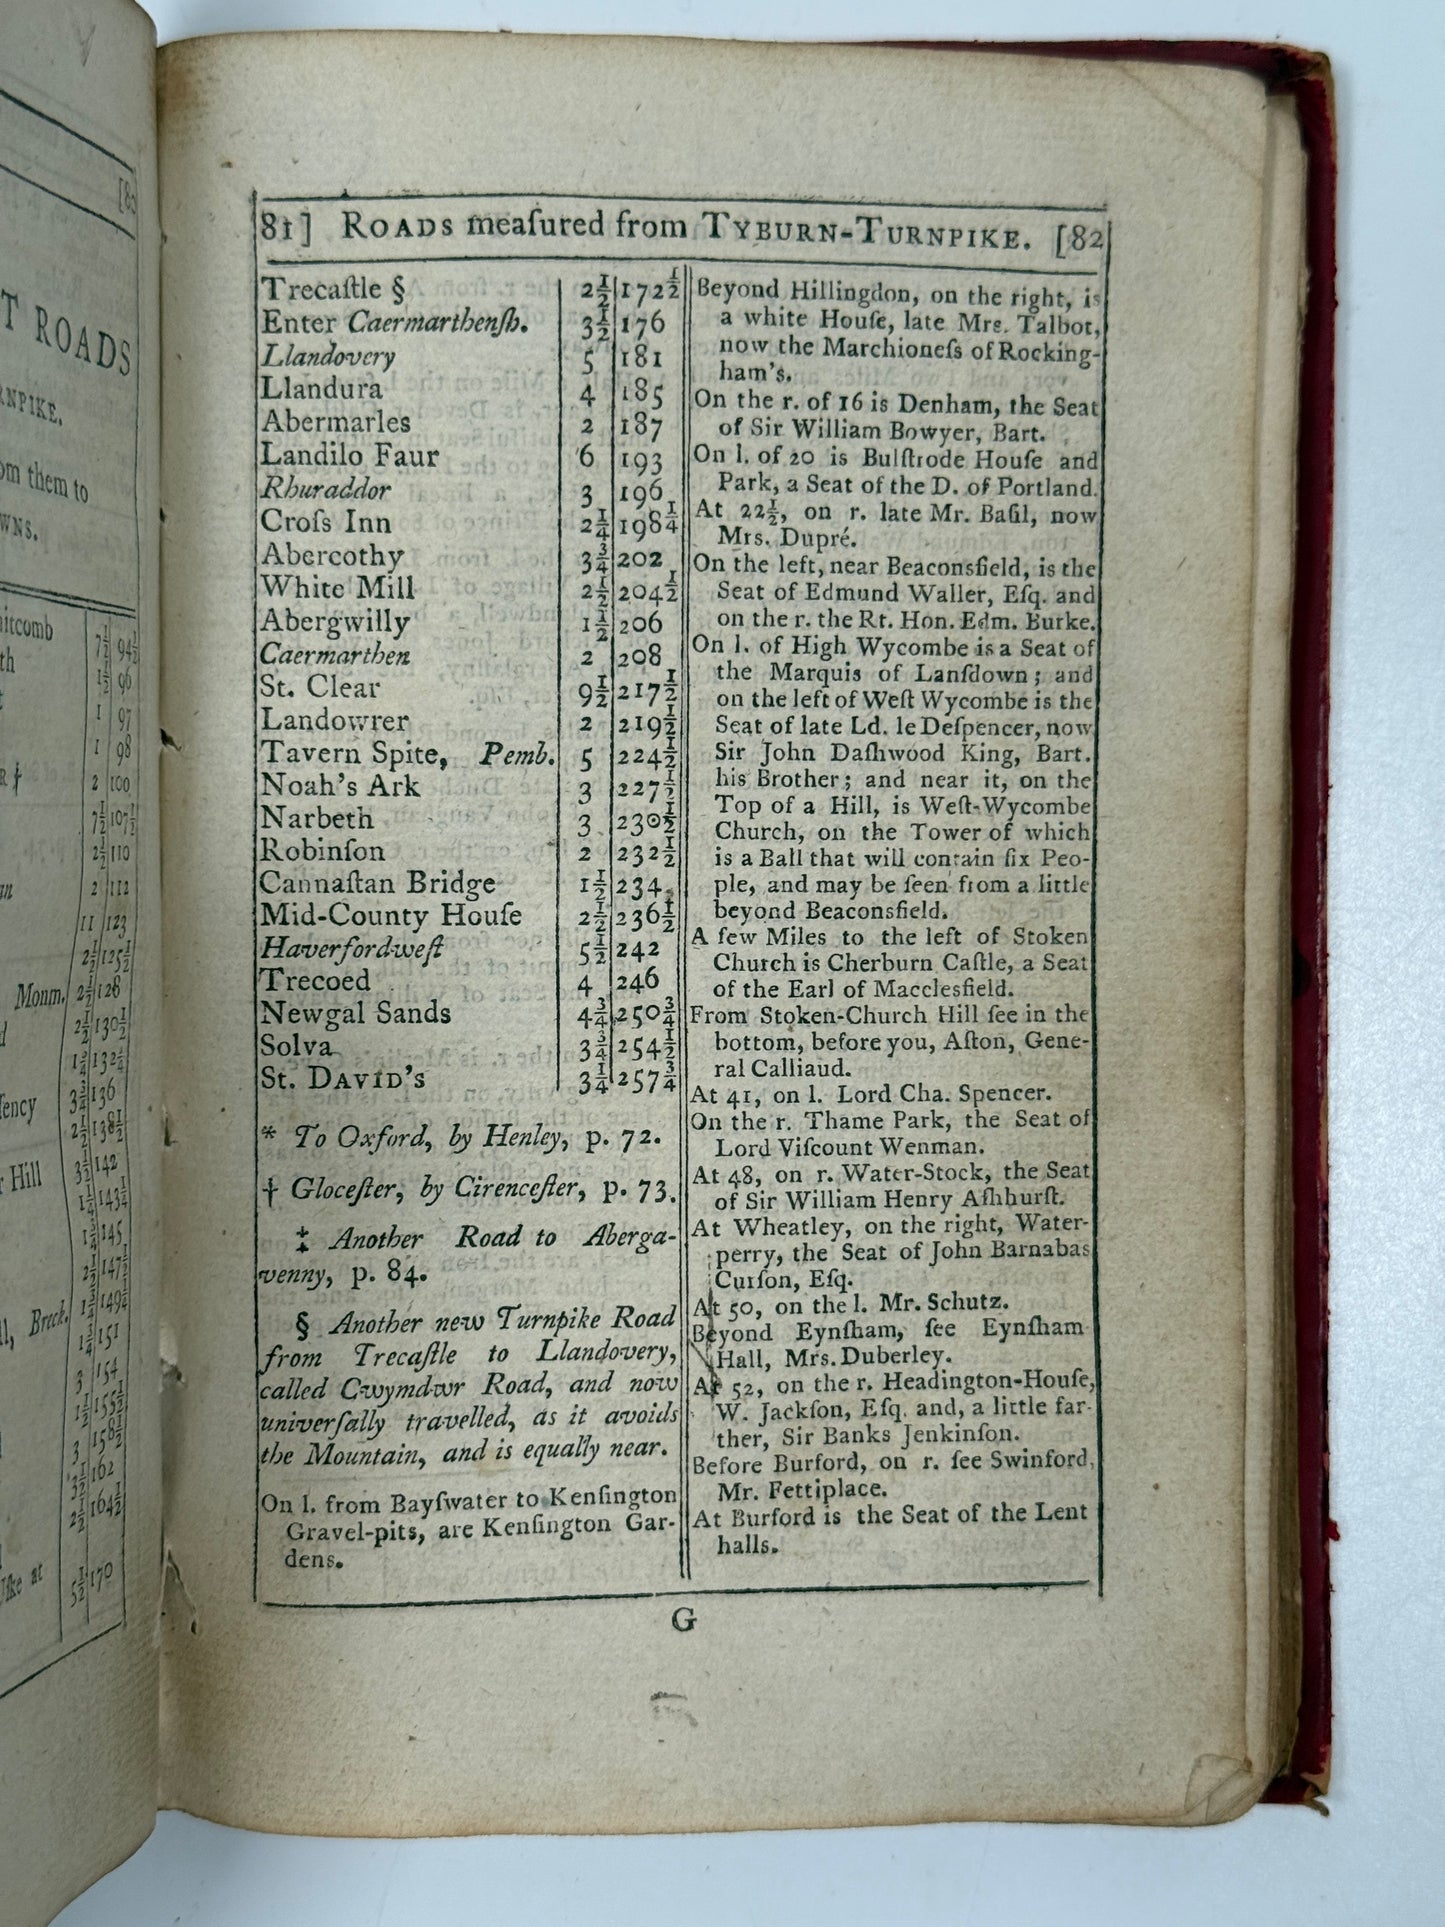 [80
T ROADS
RNPIKE.
om them to
WNS.
itcomb 7½ 94½
th 1½ 96
1 97
1 98
R † 2 100
7½ 107½
2½ 110
2 112
11 123
2½ 125½
Monm. 2½ 128
2½ 130½
1¾ 132¼
3¾ 136
ſency 2½ 138½
3½ 142
r Hill 1¼ 143¼
1¾ 145
2½ 147½
1¾ 149¼
ll, Breck. 1¾ 151
3 154
1½ 155½
3 158½
3½ 162
2½ 164½
Uſke at 5½ 170
81] ROADS meaſured from TYBURN-TURNPIKE. [82
Trecaſtle § 2½ 172½
Enter Caermarthenſh. 3½ 176
Llandovery 5 181
Llandura 4 185
Abermarles 2 187
Landilo Faur 6 193
Rhuraddor 3 196
Croſs Inn 2¼ 198¼
Abercothy 3¾ 202
White Mill 2½ 204½
Abergwilly 1½ 206
Caermarthen 2 208
St. Clear 9½ 217½
Landowrer 2 219½
Tavern Spite, Pemb. 5 224½
Noah's Ark 3 227½
Narbeth 3 230½
Robinſon 2 232½
Cannaſtan Bridge 1½ 234
Mid-County Houſe 2½ 236½
Haverfordweſt 5½ 242
Trecoed 4 246
Newgal Sands 4¾ 250¾
Solva 3¾ 254½
St. DAVID's 3¼ 257¾
* To Oxford, by Henley, p. 72.
† Gloceſter, by Cirenceſter, p. 73.
‡ Another Road to Aberga-
venny, p. 84.
§ Another new Turnpike Road
from Trecaſtle to Llandovery,
called Cwymdwr Road, and now
univerſally travelled, as it avoids
the Mountain, and is equally near.
On l. from Bayſwater to Kenſington
Gravel-pits, are Kenſington Gar-
dens.
Beyond Hillingdon, on the right, is
a white Houſe, late Mrs. Talbot,
now the Marchioneſs of Rocking-
ham's.
On the r. of 16 is Denham, the Seat
of Sir William Bowyer, Bart.
On l. of 20 is Bulſtrode Houſe and
Park, a Seat of the D. of Portland.
At 22½, on r. late Mr. Baſil, now
Mrs. Dupré.
On the left, near Beaconsfield, is the
Seat of Edmund Waller, Eſq. and
on the r. the Rt. Hon. Edm. Burke.
On l. of High Wycombe is a Seat of
the Marquis of Lanſdown; and
on the left of Weſt Wycombe is the
Seat of late Ld. le Deſpencer, now
Sir John Daſhwood King, Bart.
his Brother; and near it, on the
Top of a Hill, is Weſt-Wycombe
Church, on the Tower of which
is a Ball that will contain ſix Peo-
ple, and may be ſeen from a little
beyond Beaconsfield.
A few Miles to the left of Stoken
Church is Cherburn Caſtle, a Seat
of the Earl of Macclesfield.
From Stoken-Church Hill ſee in the
bottom, before you, Aſton, Gene-
ral Calliaud.
At 41, on l. Lord Cha. Spencer.
On the r. Thame Park, the Seat of
Lord Viſcount Wenman.
At 48, on r. Water-Stock, the Seat
of Sir William Henry Aſhhurſt.
At Wheatley, on the right, Water-
perry, the Seat of John Barnabas
Curſon, Eſq.
At 50, on the l. Mr. Schutz.
Beyond Eynſham, ſee Eynſham
Hall, Mrs. Duberley.
At 52, on the r. Headington-Houſe,
W. Jackſon, Eſq. and, a little far-
ther, Sir Banks Jenkinſon.
Before Burford, on r. ſee Swinford,
Mr. Fettiplace.
At Burford is the Seat of the Lent
halls.
G